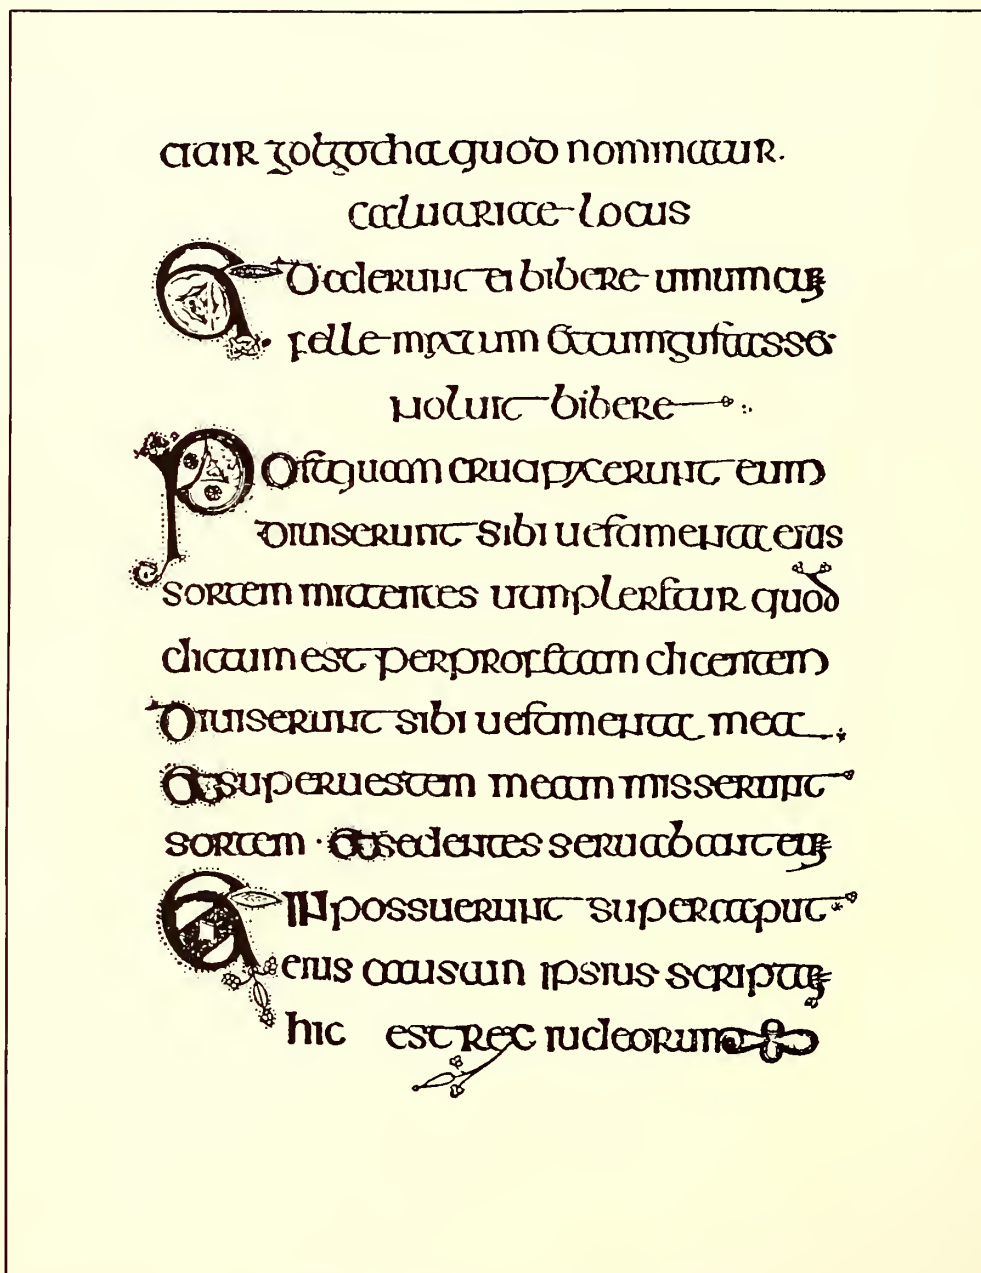 citur golgotha quod nominatur.
caluariae locus
Et dederunt ei bibere uinum cum
felle mixtum Et cum gustasset
noluit bibere
Postquam crucifixerunt eum
diuiserunt sibi uestamenta eius
sortem mittentes ut inpleretur quod
dictum est per profetam dicentem
Diuiserunt sibi uestamenta mea
Et super uestem meam misserunt
sortem · Et sedentes seruabant eum
Et inpossuerunt super caput
eius causam ipsius scriptam
hic est rex iudeorum